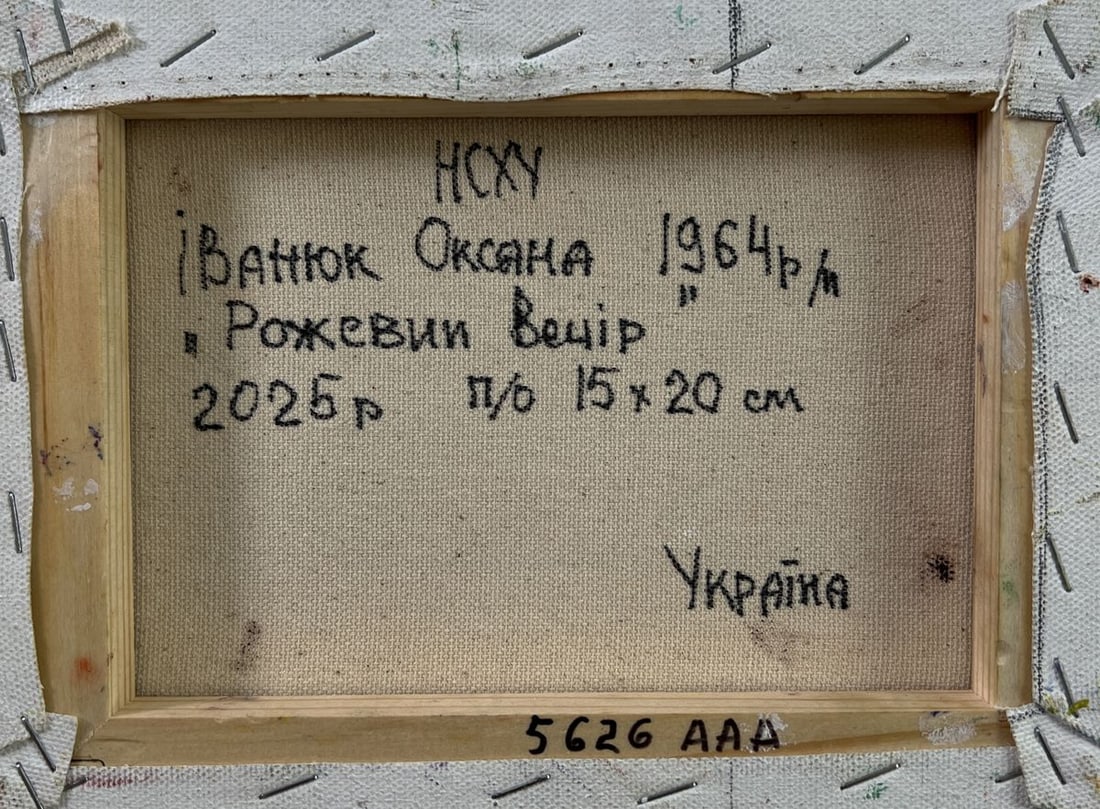 НСХУ
Іванюк Оксана 1964 р/н
„Рожевий Вечір"
2025р п/о 15х20 см
Україна
5626 ААА